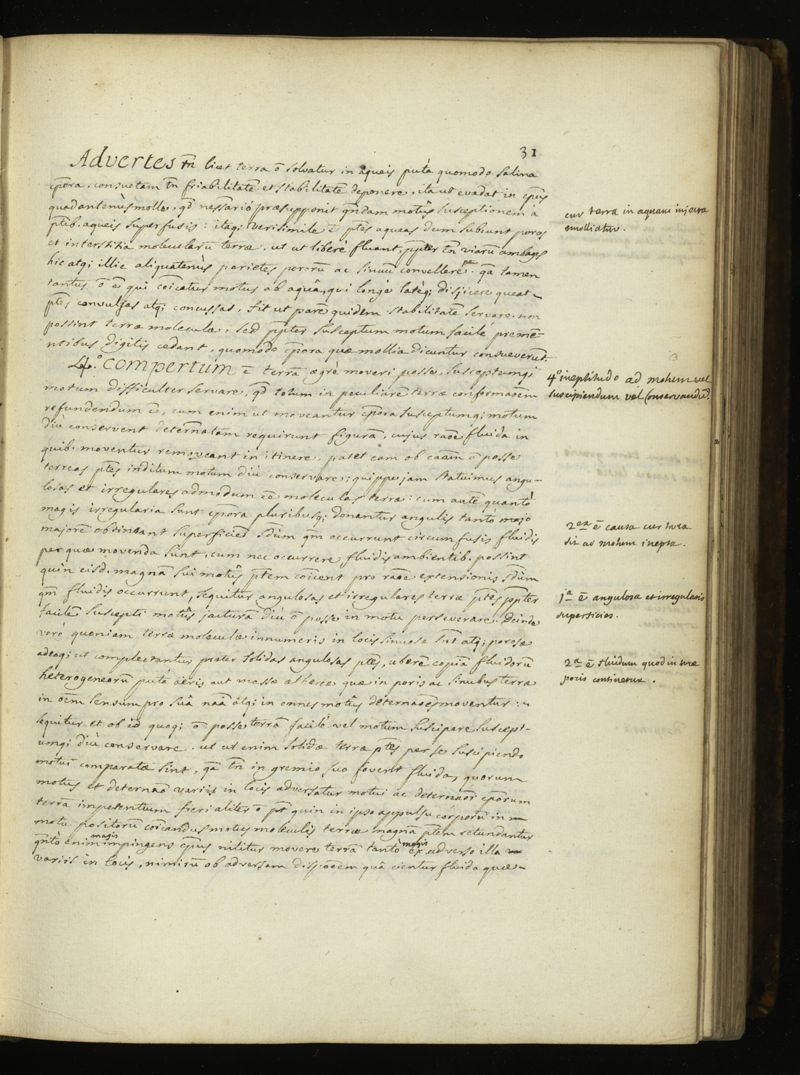 31
Advertes tn̄ licet terra ō solvatur in aqueis puta quomodo salina
cp̄ora, consuetam tn̄ friabilitatē et stabilitatē deponere, ita ut evadat in cp̄us
quadantenùs molle, qd̄ nessariò præsupponit qn̄dam motûs susceptionem à
ptib. aqueis superfusis: itaq; verisimile ē ptēs aqueas dum subiunt poros
et interstitia molecularū terræ, ut ut liberè fluant, ppter tn̄ viarū ambages
hic atq; illic aliquatenùs parietes pororū ac sinuū convellere, qā tamen
tantus ō ē qui cōīcatur motus ab aquâ, qui longe latèq; disjicere queat
ptēs convulsas atq; concussas, fit ut parē quidem stabilitatē servare non
possint terræ moleculæ, sed ppter susceptum motum facilè premē-
ntibus digitis cedant, quomodo cp̄ora quæ mollia dicuntur consueverunt
4o. compertum ē terrā ægrè moveri posse, susceptumq;
motum difficulter servare, qd̄ totum in peculiarē terræ conformāōem
refundendum ē, cum enim ut moveantur cp̄ora susceptumq; motum
diù conservent determātam requirunt figurā, cujus rāōe fluida in
quib. moventur removeant in itinere, patet eam ob cāām ō posse
terreas ptēs inditum motum diù conservare; quippe jam statuimus angu-
losas et irregulares admodum ēē moleculas terræ: cum autē quantò
magis irregularia sunt cp̄ora pluribusq; donantur angulis tantò
majorē obtineant superficiem sdūm qm̄ occurrunt circumfusis fluidis
per quæ movenda sunt, cum nec occurrere fluidis ambientib. possint
quin eisd. magnam sui motûs ptem cōīcent pro rāōe extensionis sdūm
qm̄ fluidis occurrunt, sequitur angulosas et irregulares terræ ptēs ppter
facilē suscepti motûs jacturā diù ō posse in motu perseverare. deinde
verò quoniam terræ moleculæ innumeris in locis sinuosæ sūt atq; porosæ
adeoq; ut complectantur præter solidas angulosas ptēs, uberē copiā fluidorū
heterogeneorū puta aëris aut massæ æthereæ quæ in poris ac sinubus terræ
in ōēm sensum pro suâ nāā atq; in omnes motûs determāōes moventur:
sequitur et ob id quoq; ō posse terrā facilè vel motum suscipere suscept-
umq; diù conservare. ut ut enim solidæ terræ ptēs per se suscipiendo
motui comparatæ sint, qā tn̄ in gremio suo fovent fluida, quorum
motus et determāō variis in locis adversatur motui ac determāōi cp̄orum
terrā impetentium fieri aliter ō pt̄ quin in ipso appulsu corporū in
motu positorū cōīcandus motus moleculis terræ magnā ptem retundantur
qn̄tò enim magis impingens cp̄us nititur movere terrā tantò magis ex adverso illa
variis in locis, nimirū ob adversam dispōōem quâ cientur fluida quæ
cur terra in aquam injecta
emolliatur.
4o ineptitudo ad motum vel
suscipiendum vel conservandū.
2ex ē causa cur terra
sit ad motum inepta.
1a ē angulosa et irregularis
superficies.
2a ē fluidum quod in terræ
poris continetur.